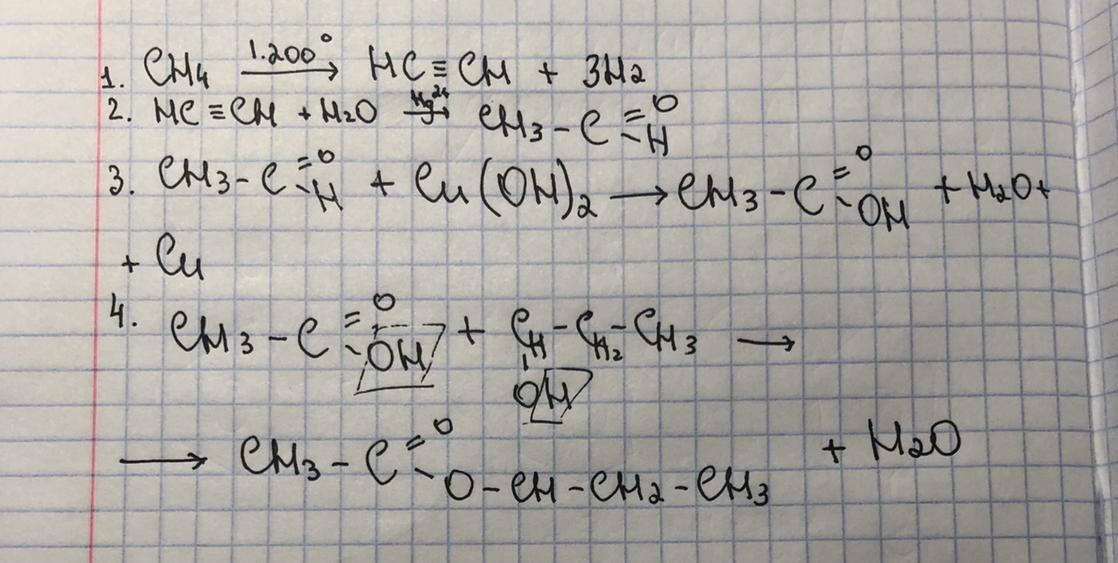 1. CH4 1.200° → HC≡CH + 3H2
2. HC≡CH + H2O Hg2+ → CH3-C=O-H
3. CH3-C=O-H + Cu(OH)2 → CH3-C=O-OH + H2O+
+ Cu
4. CH3-C=O-OH + CH-CH2-CH3 →
OH
→ CH3-C=O-O-CH-CH2-CH3 + H2O